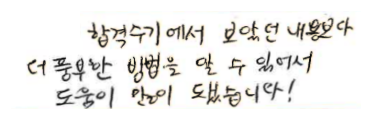 합격수기에서 보았던 내용보다
더 풍부한 방법을 알 수 있어서
도움이 많이 됐습니다!